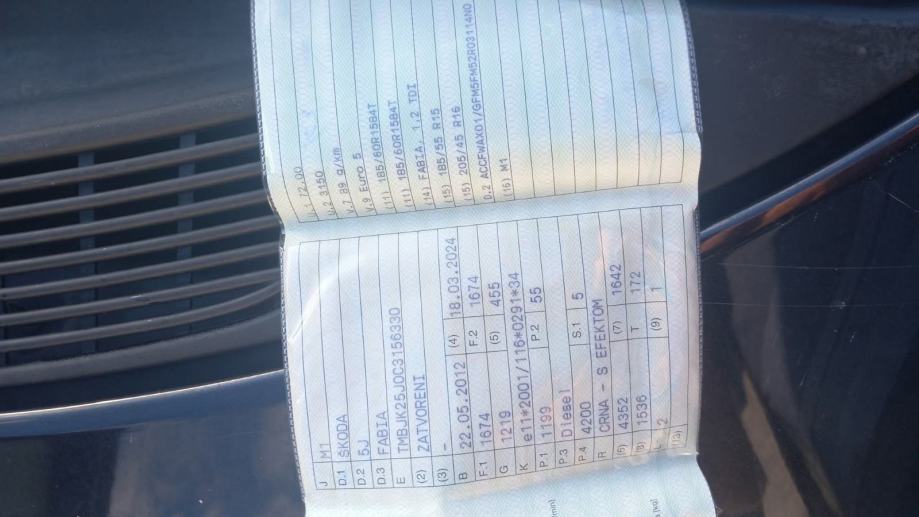 J M1
D.1 ŠKODA
D.2 5J
D.3 FABIA
E TMBJK25J0C3156330
(2) ZATVORENI
(3) -
B 22.05.2012 (4) 18.03.2024
F.1 1674 F.2 1674
G 1219 (5) 455
K e11*2001/116*0291*34
P.1 1199 P.2 55
P.3 Diesel
P.4 4200 S.1 5
R CRNA - S EFEKTOM
(6) 4352 (7) 1642
(8) 1536 T 172
L 2 (9) 1
(13)
U.1 72,00
U.2 3150
V.7 89 g/km
V.9 Euro 5
(11) 185/60R1584T
(11) 185/60R1584T
(14) FABIA, 1.2 TDI
(15) 185/55 R15
(15) 205/45 R16
D.2 ACCFWAX01/GFM5FM52R03114N0
(16) M1